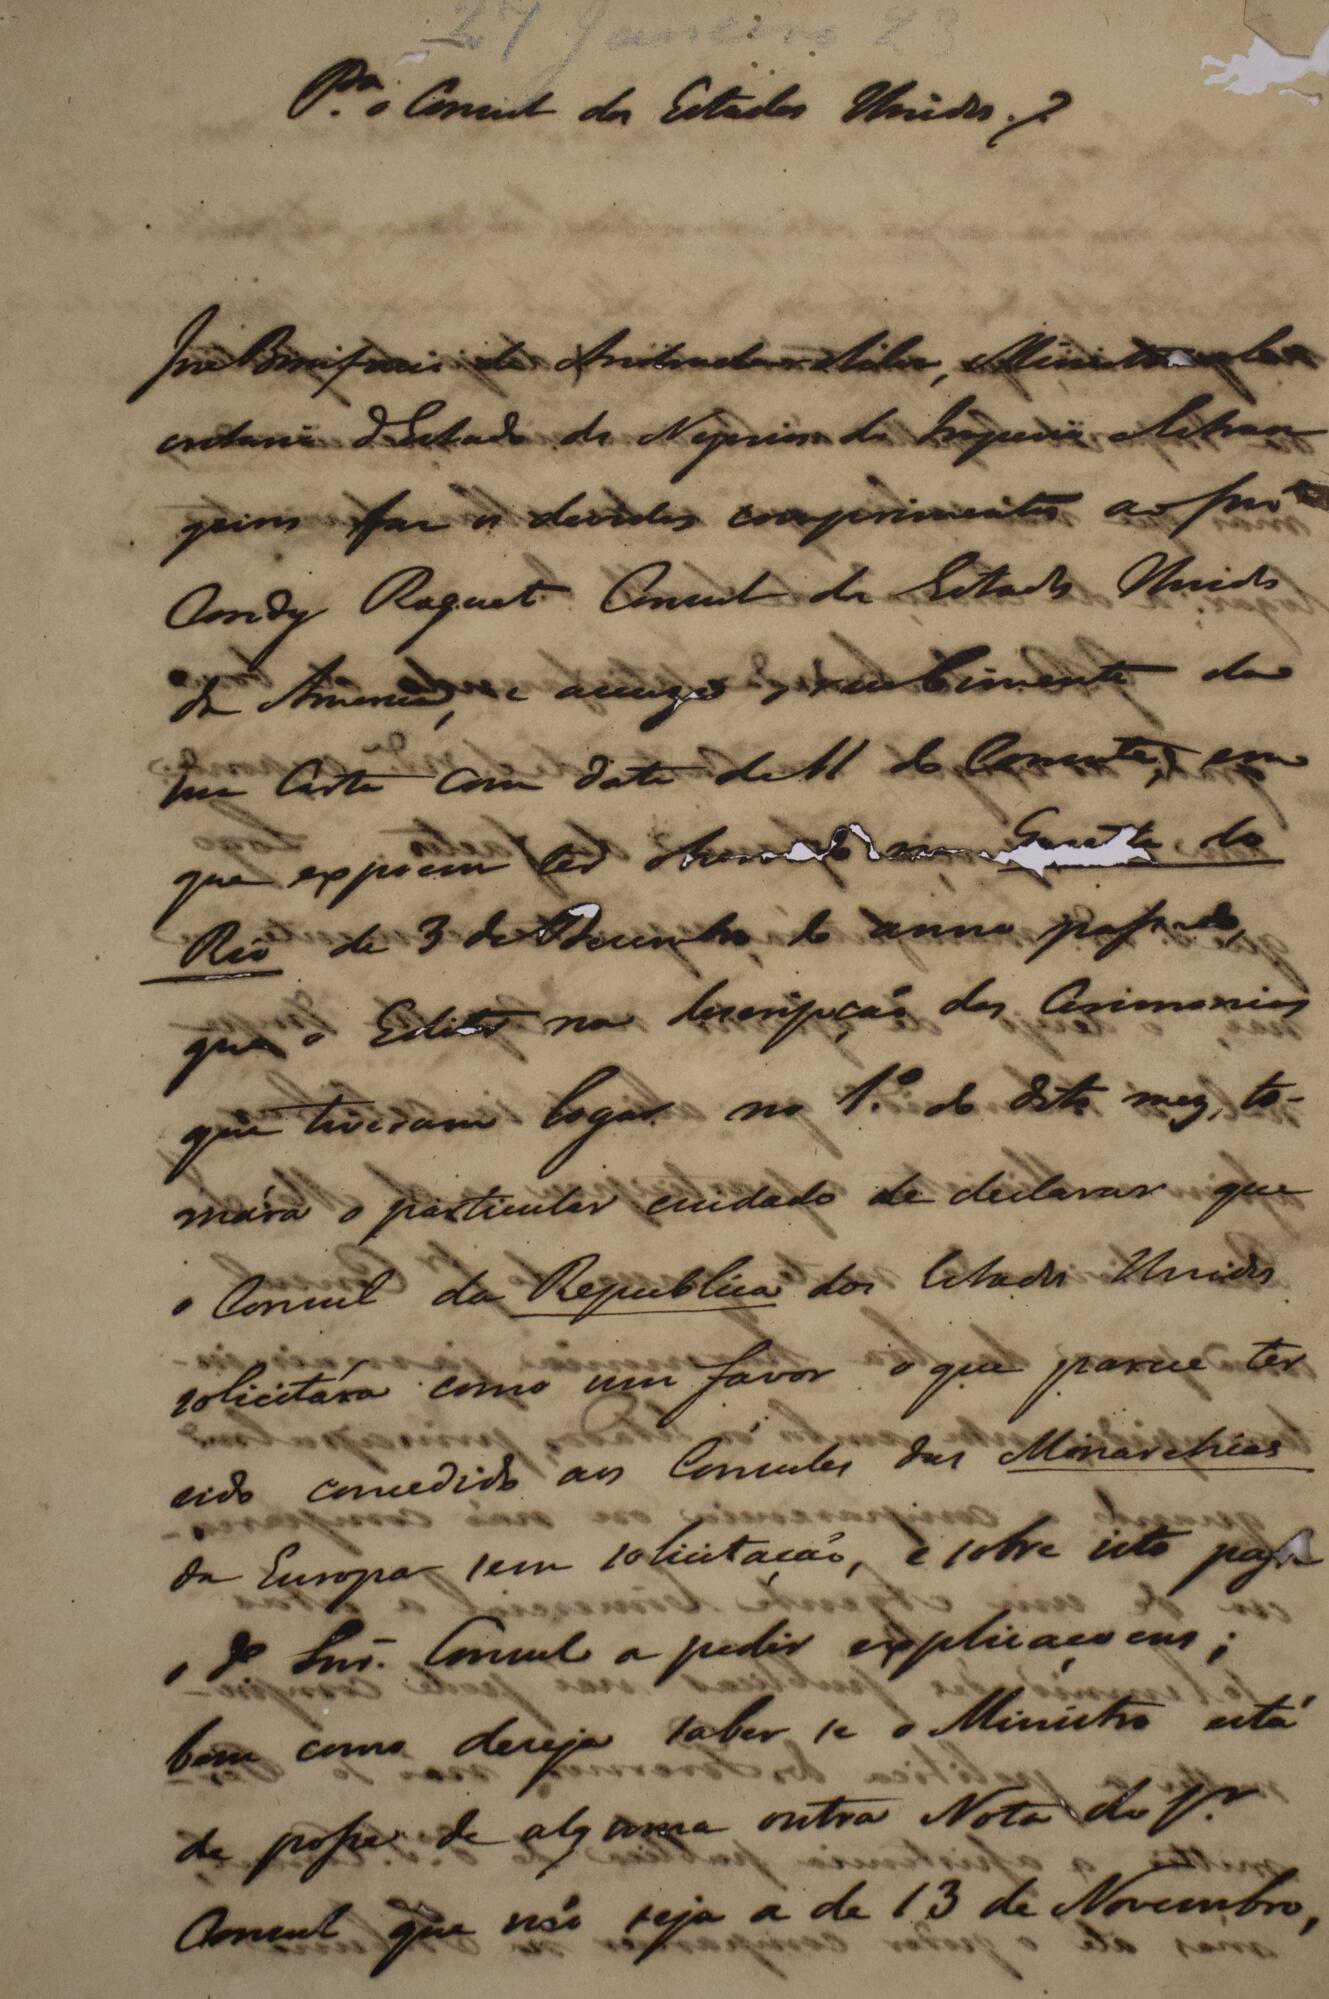 27 Janeiro 23
Pª. o Consul dos Estados Unidos.
José Bonifacio de Andrada e Silva, Ministro e Se
cretario d'Estado dos Negocios do Imperio e Estran
geiros faz os devidos comprimentos ao Snr.
Condy Raguet Consul dos Estados Unidos
da America, e accuza o recebimento da
sua Carta com data de 11 do Corrente, em
que expoem ter observado na Gazeta do
Rio de 3 de Dezembro do anno passado,
que o Editor na descripção das Cerimonias
que tiveram logar no 1.º do dito mez, to-
mára o particular cuidado de declarar que
o Consul da Republica dos Estados Unidos
solicitára como um favor o que parece ter
sido concedido aos Consules das Monarchias
da Europa sem solicitação, e sobre isto passa
o do. Snr. Consul a pedir explicaçoens;
bem como deseja saber se o Ministro está
de posse de alguma outra Nota do Sr.
Consul que não seja a de 13 de Novembro,